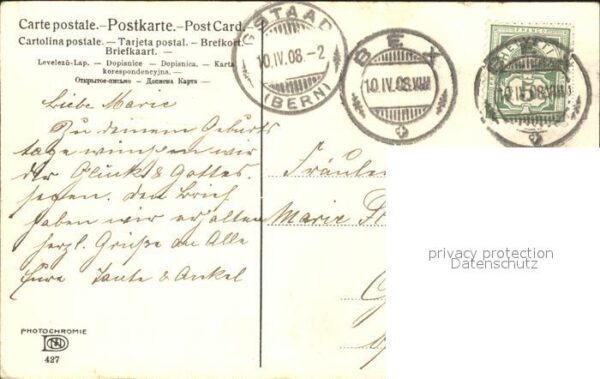 Carte postale.–Postkarte.–Post Card.
Cartolina postale. – Tarjeta postal. – Brefkort.
Briefkaart. —
Levelező-Lap. — Dopisnice — Dopisnica. — Karta
korespondencyjna. —
Открытое письмо — Дописна Карта —
GSTAAD
10.IV.08.–2
(BERN)
BEX
10.IV.08.VIII
BEX
10.IV.08.VIII
FRANCO
HELVETIA
Liebe Marie
Zu deinem Geburts
tage wünschen wir
dir Glück & Gottes
segen. den Brief
haben wir erhalten
herzl. Grüße an Alle
Eure Tante & Onkel
Fräulein
Marie
privacy protection
Datenschutz
PHOTOCHROMIE
427